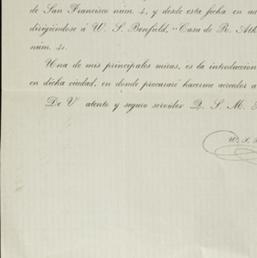 de San Francisco núm. 4, y desde esta fecha en ad
dirigiéndose á W. S. Benfield, "Casa de R. Ath
núm. 4.
Una de mis principales miras, es la introducción
en dicha ciudad, en donde procuraré hacerme acreedor a
De V atento y seguro servidor Q. S. M.
W. S.